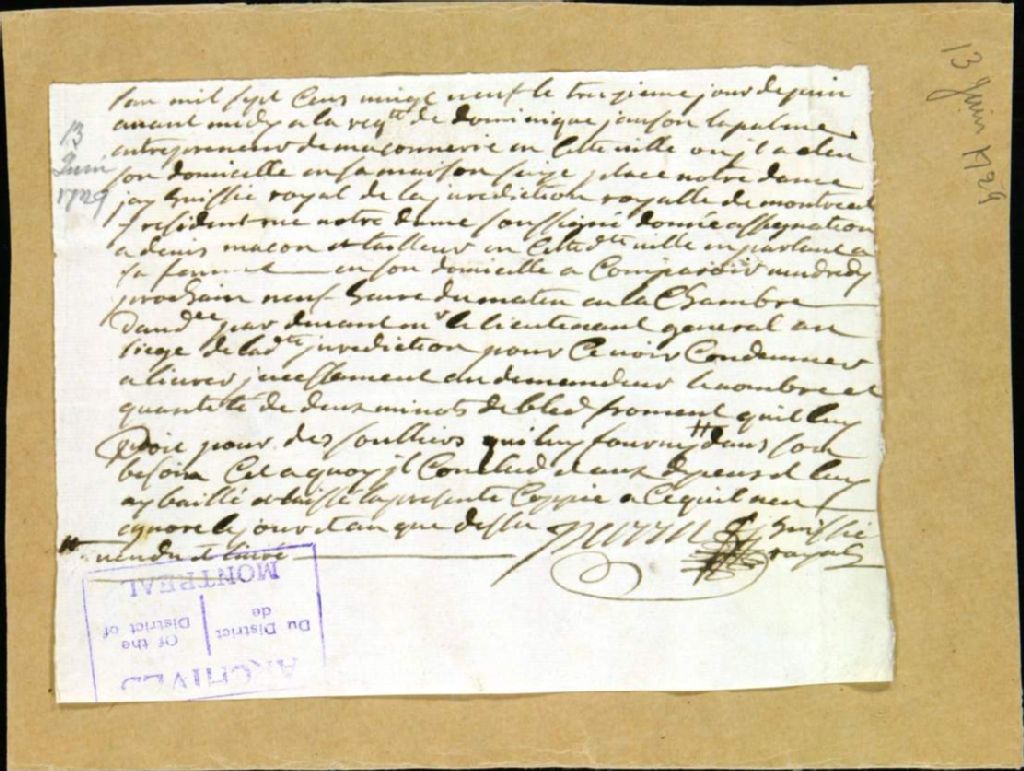 Lan mil sept Cens vingt neuf le treizieme jour de juin
avant midy a la reqte de dominique janson lapalme
entrepreneur de maconnerie en Cete ville ou jl a elu
son domicille en sa maison size place notre dame
jay huissie royal de la jurediction royalle de montreal
resident rue notre dame soussigné donné assignation
a denis macon et tailleur en Cete dte ville en parlant a
sa femme en son domicille a Comparoir vendredy
prochain neuf heure du matin en la Chambre
daudce par devant mr le lieutenant general au
siege de lad te jurediction pour Ce voir Condemner
a livrer jncessament au demandeur le nombre et
quantité de deux minots de bled froment quil luy
doit pour des soulliers quil luy fourny # dans son
besoin Cet a quoy jl Conclud et aux depens et luy
ay baillé et laissé la presente Coppie a Ce quil nen
ignore le jour et an que dessu
huissié
royal
# vendu et livré
13
Juin
1729
13 Juin 1729
ARCHIVES
Du District
de
Of the
District of
MONTREAL